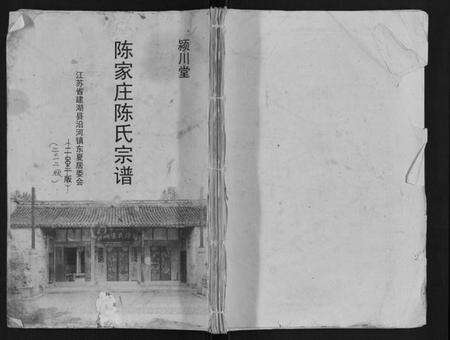 颍川堂
陈家庄陈氏宗谱
江苏省建湖县沿河镇东夏居委会